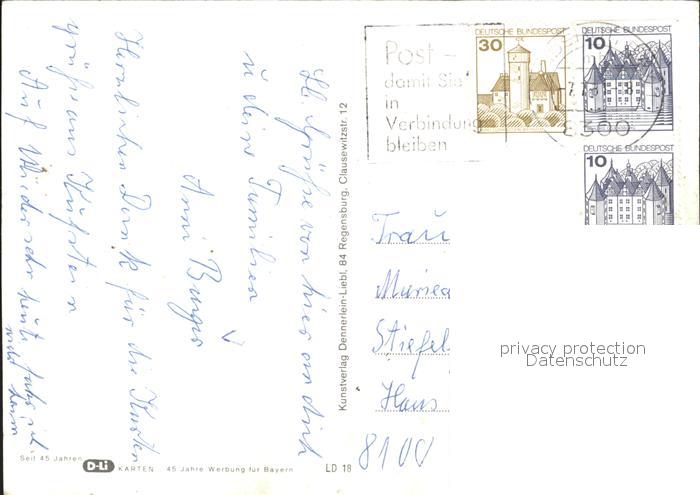 Post -
damit Sie
in
Verbindung
bleiben
30
DEUTSCHE BUNDESPOST
10
DEUTSCHE BUNDESPOST
8500
DEUTSCHE BUNDESPOST
10
Hl. Grüße von hier an dich
u. deine Familien
Anni
Herzlichen Dank für die Karten
grüße aus Kufstein
Auf Wiedersehn heute fahre ich
nach heim
Kunstverlag Dennerlein-Liebl, 84 Regensburg, Clausewitzstr. 12
Frau
Stiefel
Haus
8100
privacy protection
Datenschutz
Seit 45 Jahren D-Li KARTEN 45 Jahre Werbung für Bayern LD 18